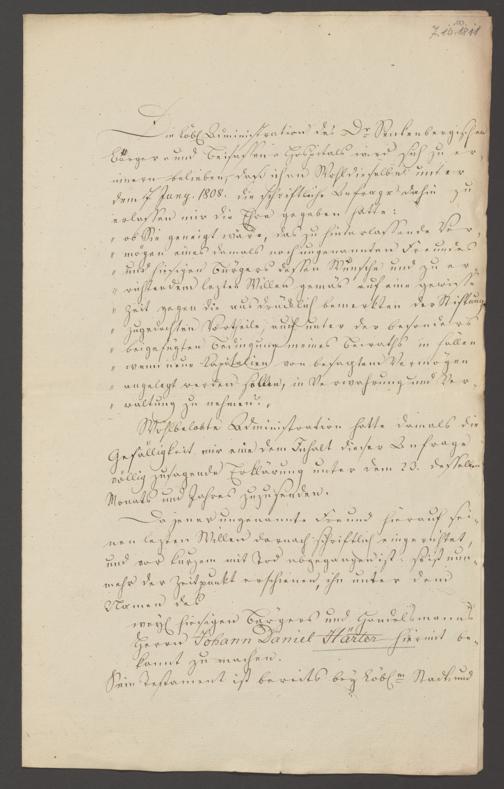 7. 10. 1811
Die löbl. Administration des Dr. Senkenbergischen
Bürger- und Beisassen-Hospitals wird sich zu er-
innern belieben, daß ihro Wohldieselben unter
dem 7 Jany. 1808. die schriftliche Anfrage dahin zu
erlassen mir die Ehre gegeben hatte:
" ob Sie geneigt wäre, das zu hinterlassende Ver-
" mögen eines damals noch ungenannten Freundes
" und hiesigen Bürgers dessen Wunsche und zu er-
" richtendem lezten Willen gemäs auf eine gewisse
" Zeit gegen die ausdrücklich bemerkten der Stiftung
" zugedachten Vortheile, auch unter der besonders
" beigefügten Bedingung meines Beiraths in Fällen
" wenn neue Kapitalien von besagtem Vermögen
" angelegt werden sollen, in Verwahrung und Ver-
" waltung zu nehmen?"
Wohlbelobte Administration hatte damals die
Gefälligkeit mir eine dem Inhalt dieser Anfrage
völlig zusagende Erklärung unter dem 23. desselben
Monats und Jahres zuzusenden.
Da jener ungenannte Freund hierauf sei-
nen lezten Willen darnach schriftlich eingerichtet,
und vor kurzem mit Tod abgegangen ist: so ist nun-
mehr der Zeitpunkt erschienen, ihn unter dem
Namen des
weyl. hiesigen Bürgers und Handelsmanns
Herrn Johann Daniel Härter hiermit be-
kannt zu machen.
Sein Testament ist bereits bey Löbl.m Stadt- und